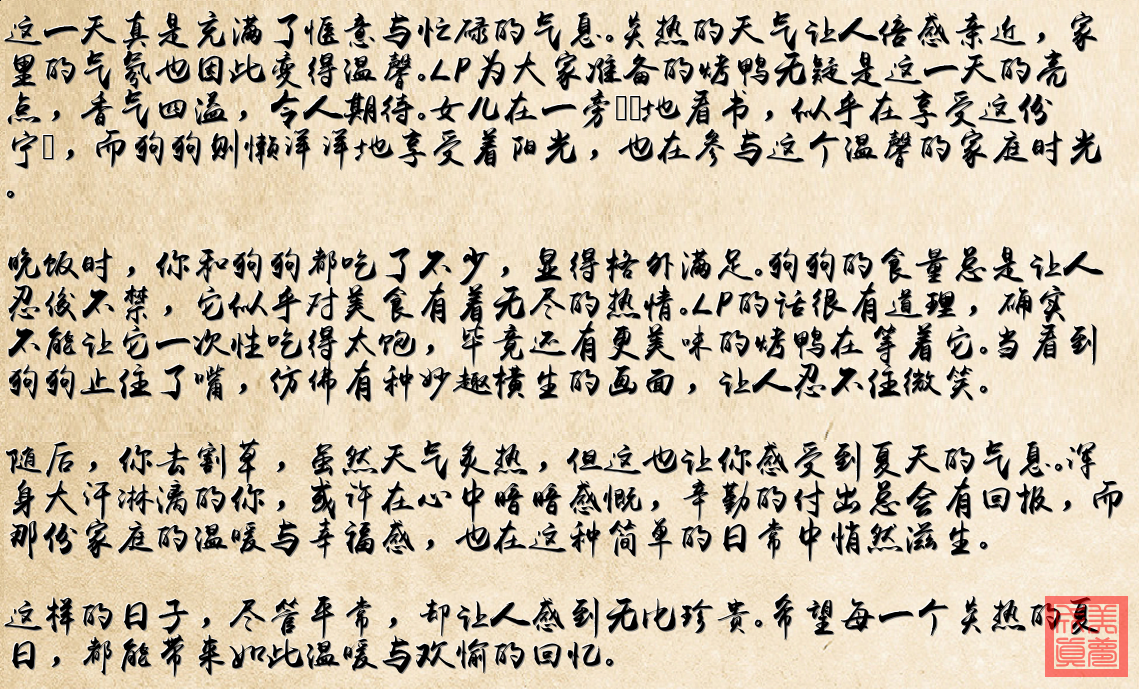 这一天真是充满了惬意与忙碌的气息。炎热的天气让人倍感亲近，家
里的气氛也因此变得温馨。LP为大家准备的烤鸭无疑是这一天的亮
点，香气四溢，令人期待。女儿在一旁地看书，似乎在享受这份
宁，而狗狗则懒洋洋地享受着阳光，也在参与这个温馨的家庭时光
。
晚饭时，你和狗狗都吃了不少，显得格外满足。狗狗的食量总是让人
忍俊不禁，它似乎对美食有着无尽的热情。LP的话很有道理，确实
不能让它一次性吃得太饱，毕竟还有更美味的烤鸭在等着它。当看到
狗狗止住了嘴，仿佛有种妙趣横生的画面，让人忍不住微笑。
随后，你去割草，虽然天气炙热，但这也让你感受到夏天的气息。浑
身大汗淋漓的你，或许在心中暗暗感慨，辛勤的付出总会有回报，而
那份家庭的温暖与幸福感，也在这种简单的日常中悄然滋生。
这样的日子，尽管平常，却让人感到无比珍贵。希望每一个炎热的夏
日，都能带来如此温暖与欢愉的回忆。